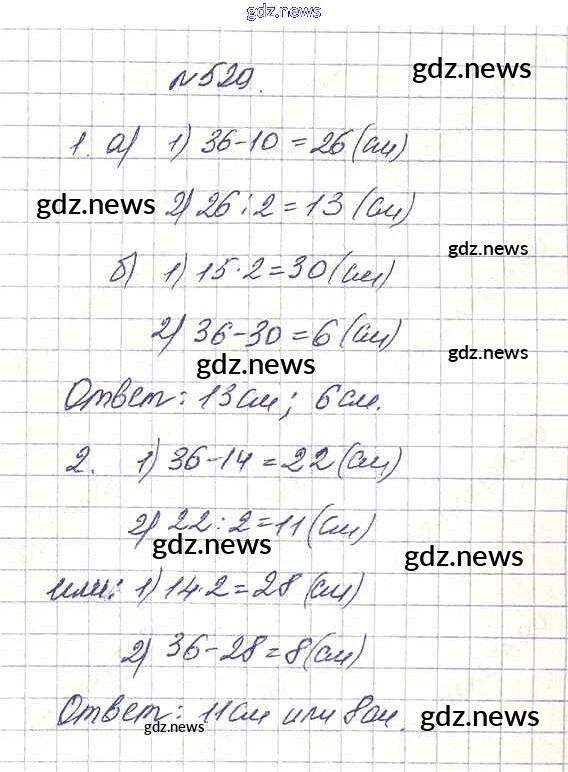 gdz.news
gdz.news
№529.
1. а) 1) 36-10=26(см)
gdz.news 2) 26:2=13 (см)
gdz.news
б) 1) 15·2=30(см)
2) 36-30=6(см)
gdz.news
gdz.news
Ответ: 13см; 6см.
2. 1) 36-14=22(см)
2) 22:2=11(см)
gdz.news
gdz.news
или: 1) 14·2=28(см)
2) 36-28=8(см)
Ответ: 11см или 8см.
gdz.news
gdz.news